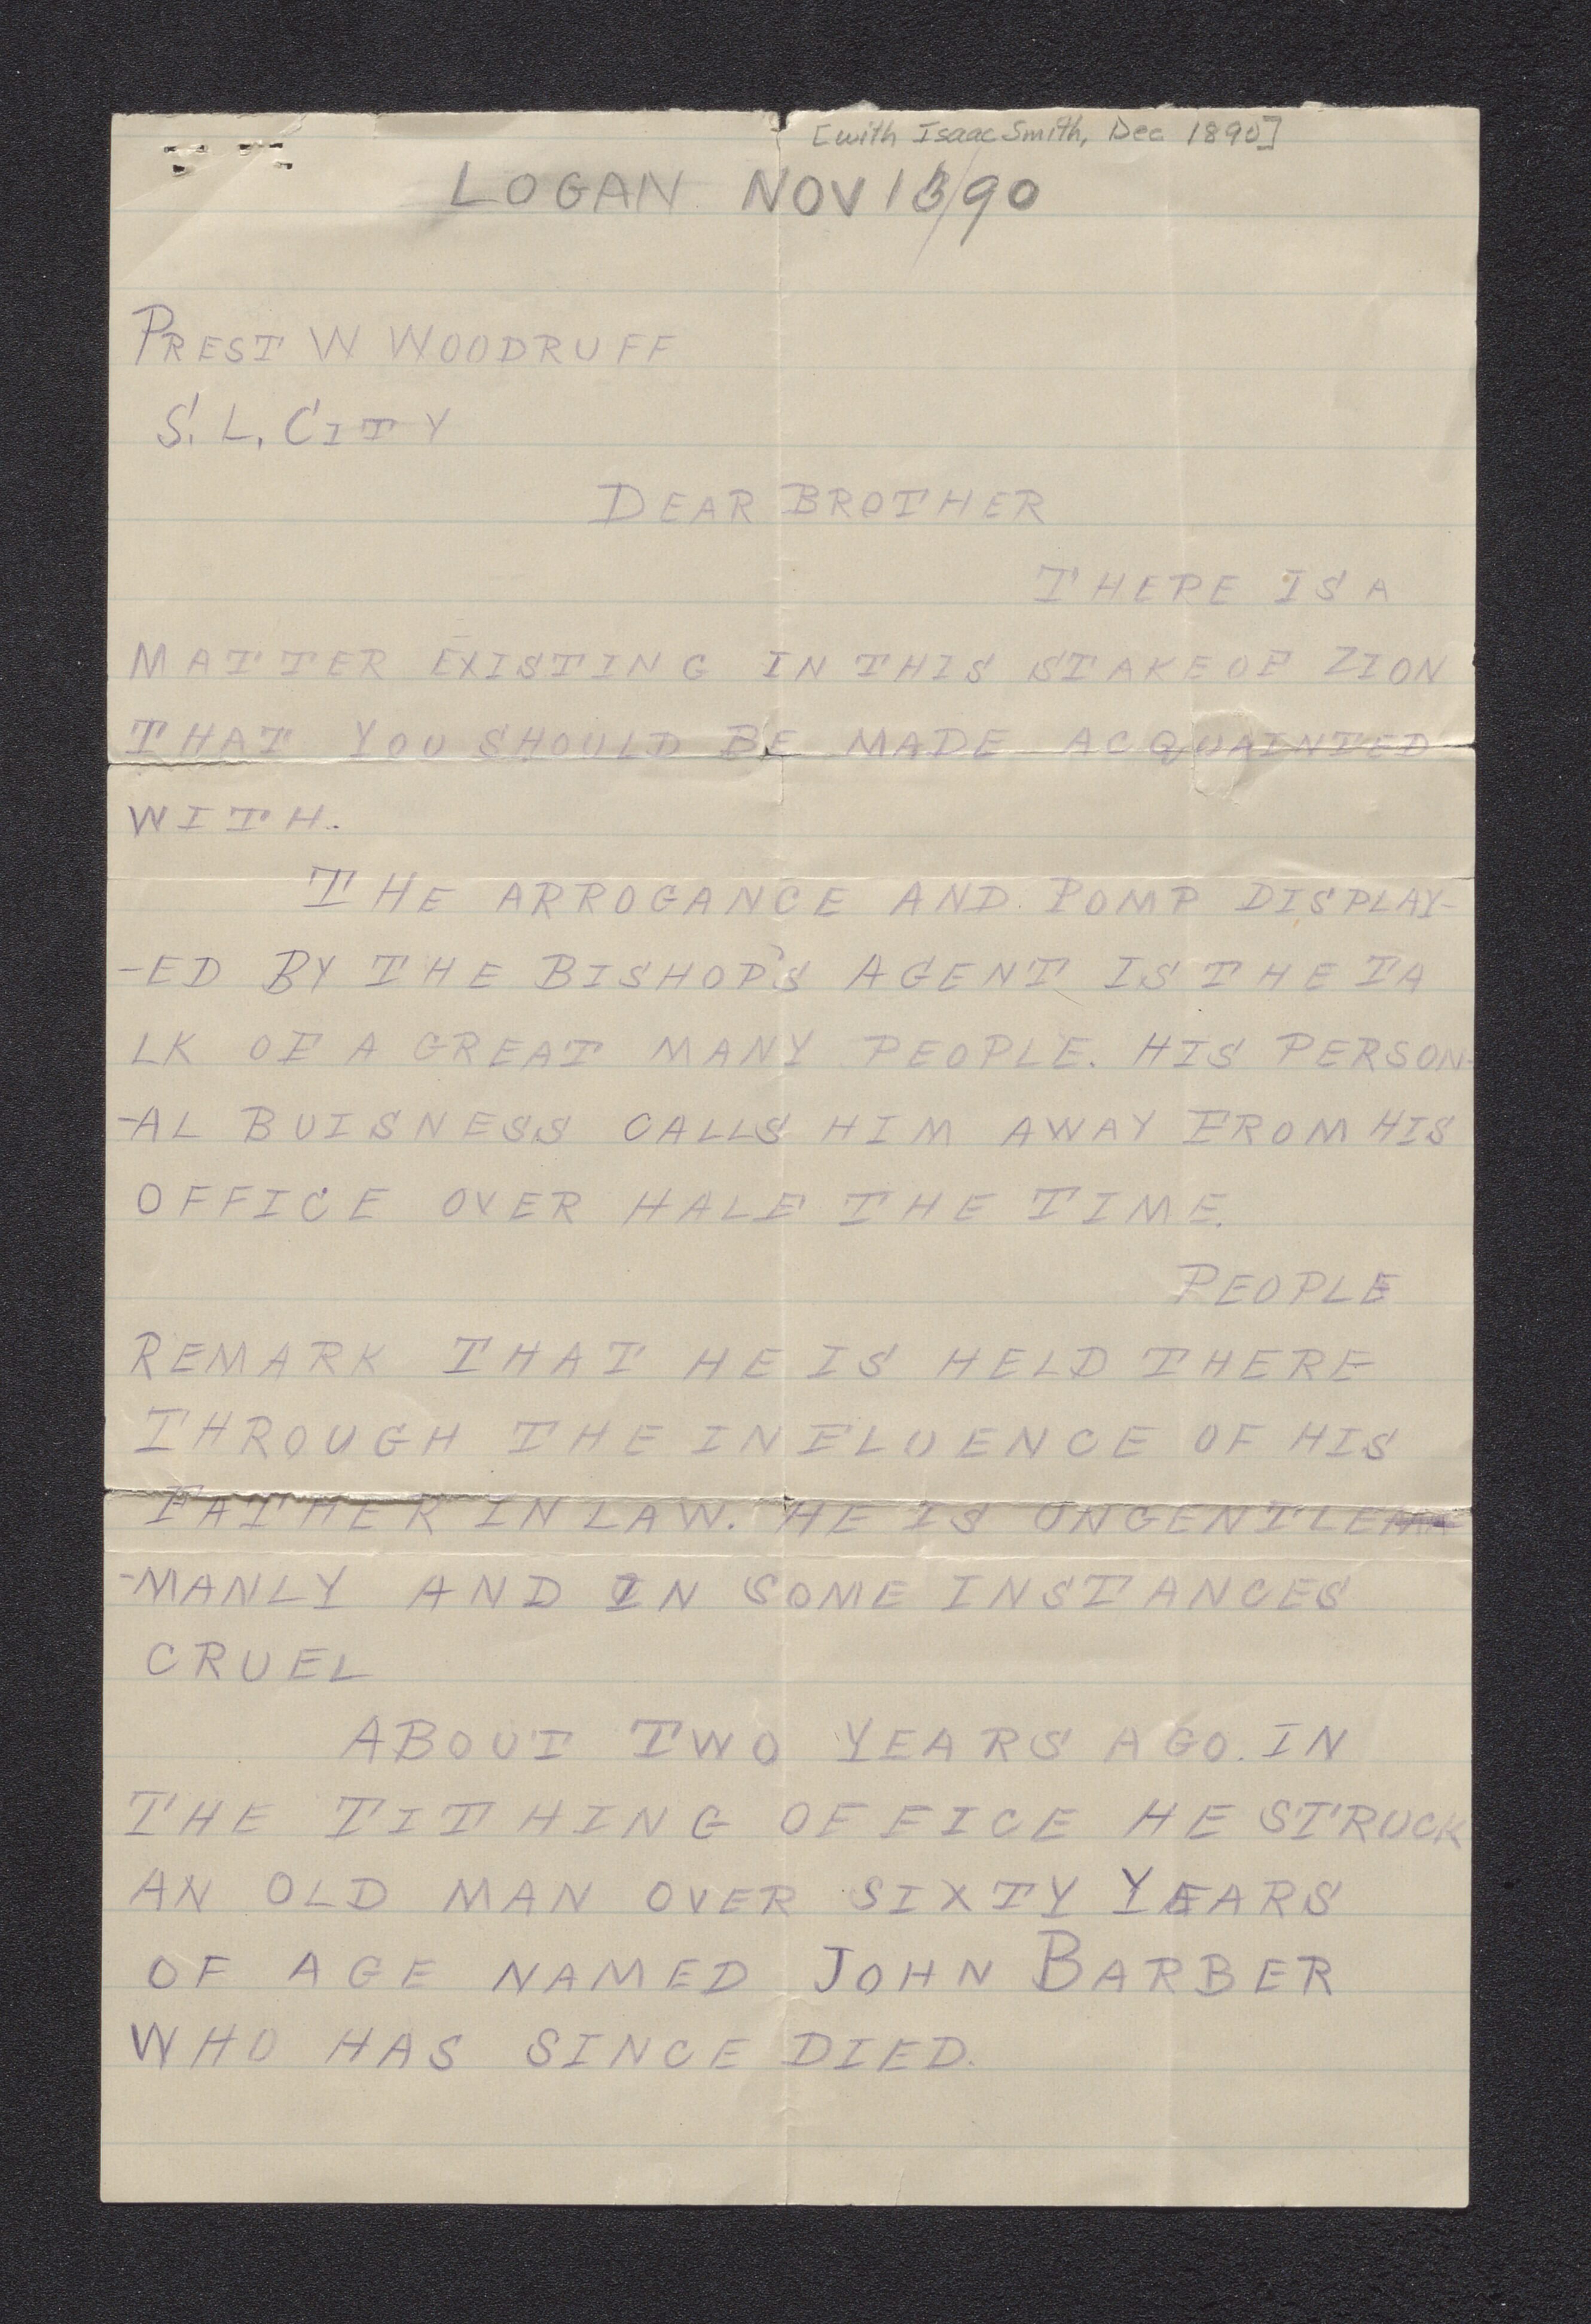 [with Isaac Smith, Dec 1890]
LOGAN NOV 18/90
PREST W WOODRUFF
S. L. CITY
DEAR BROTHER
THERE IS A
MATTER EXISTING IN THIS STAKE OF ZION
THAT YOU SHOULD BE MADE ACQUAINTED
WITH.
THE ARROGANCE AND POMP DISPLAY-
-ED BY THE BISHOP'S AGENT IS THE TA
LK OF A GREAT MANY PEOPLE. HIS PERSON-
-AL BUISNESS CALLS HIM AWAY FROM HIS
OFFICE OVER HALF THE TIME.
PEOPLE
REMARK THAT HE IS HELD THERE
THROUGH THE INFLUENCE OF HIS
FATHER IN LAW. HE IS UNGENTLE
-MANLY AND IN SOME INSTANCES
CRUEL
ABOUT TWO YEARS AGO. IN
THE TITHING OFFICE HE STRUCK
AN OLD MAN OVER SIXTY YEARS
OF AGE NAMED JOHN BARBER
WHO HAS SINCE DIED.